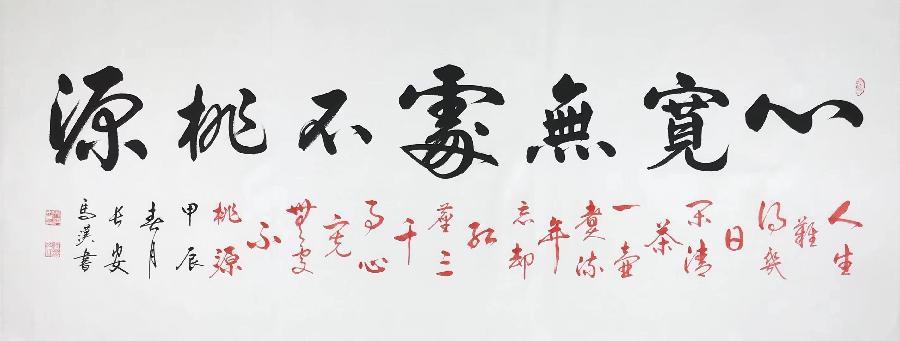 心寬無處不桃源
人生
難
得幾
日
閑清
茶
一壺
煮流
年
忘却
紅
塵三
千
事心
寬
無處
不
桃源
甲辰
春月
長安
馬漢書